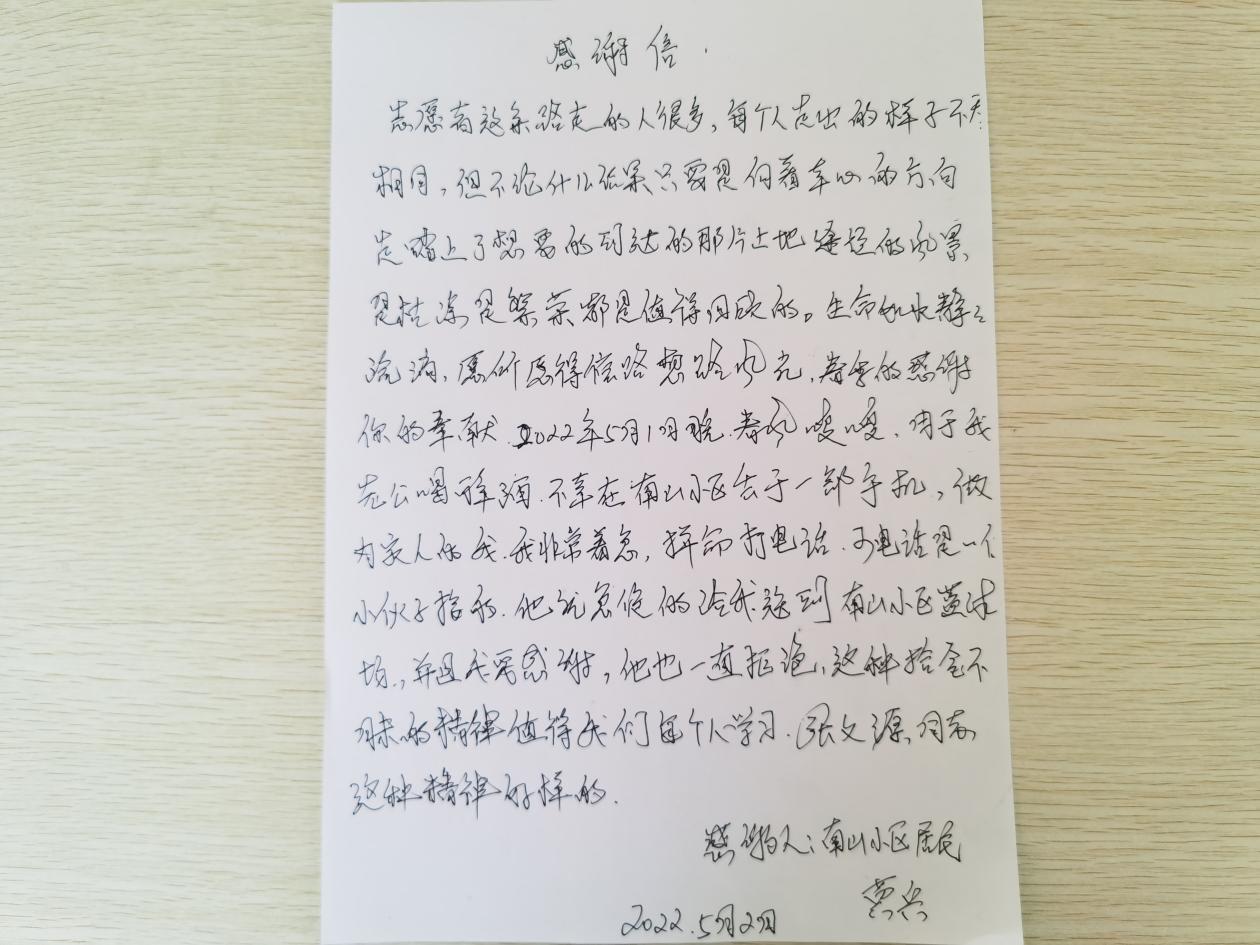 感谢信.
志愿者这条路走的人很多，每个人走出的样子不尽
相同，但不论什么结果只要是向着本心的方向
走踏上了想要的到达的那片土地途径的风景
是枯涤是繁荣都是值得回味的。生命如水静静
流淌，愿所愿得偿路想路风光，春雪的感谢
你的奉献.2022年5月1日晚.春风嗖嗖.由于我
老公喝醉酒.不幸在南山小区丢了一部手机，做
为家人的我.我非常着急，拼命打电话.可电话是一个
小伙子拾的.他就急促的给我送到南山小区蓝球
场.,并且我要感谢，他也一直拒绝、这种拾金不
昧的精神值得我们每个人学习.张文源、同志
这种精神好样的.
感谢人:南山小区居民
2022.5月2日